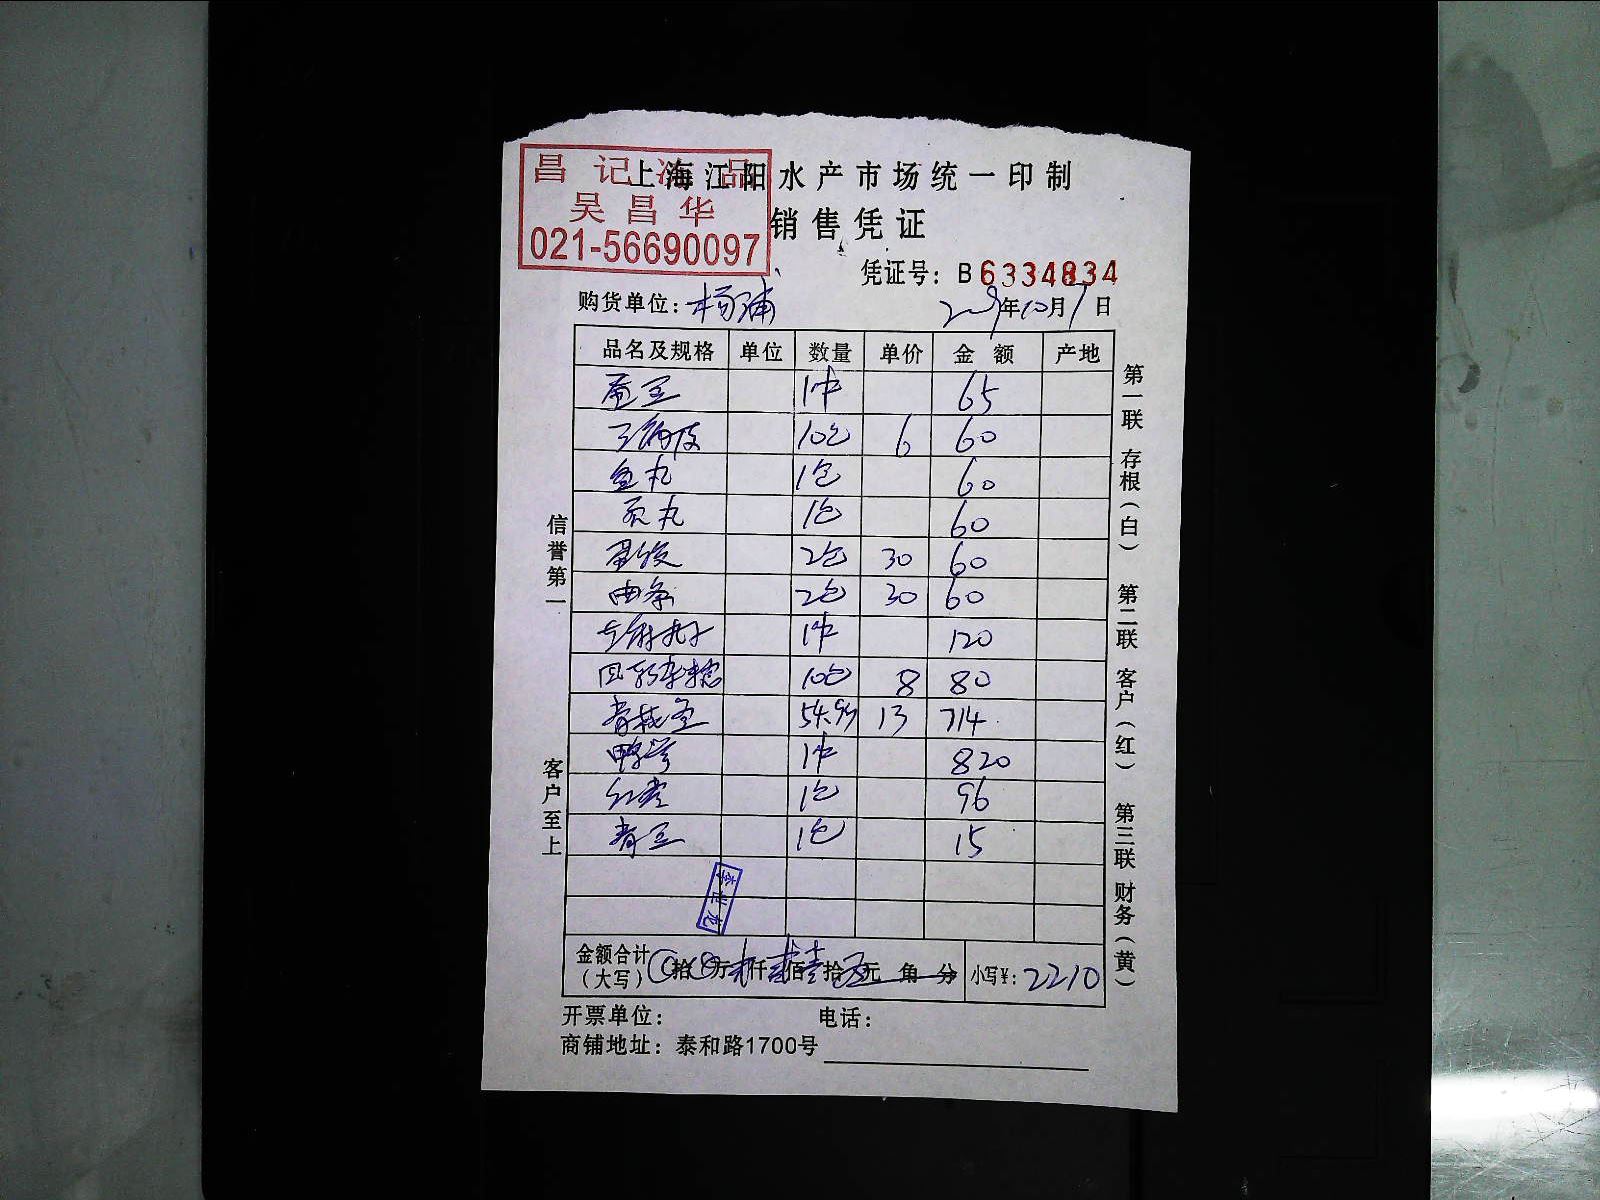 昌记冻品
上海江阳水产市场统一印制
吴昌华
销售凭证
021-56690097
凭证号: B 6334834
购货单位: 杨浦
年10月1日
品名及规格 单位 数量 单价 金额 产地
1件 65
10包 6 60
鱼丸 1包 60
1包 60
2包 30 60
2包 30 60
1件 120
10包 8 80
13 714
1件 820
1包 96
青豆 1包 15
李世龙
金额合计(大写) 拾 万 仟 佰 拾 元 角 分 小写¥: 2210
开票单位: 电话:
商铺地址: 泰和路1700号
信誉第一
客户至上
第一联 存根(白) 第二联 客户(红) 第三联 财务(黄)